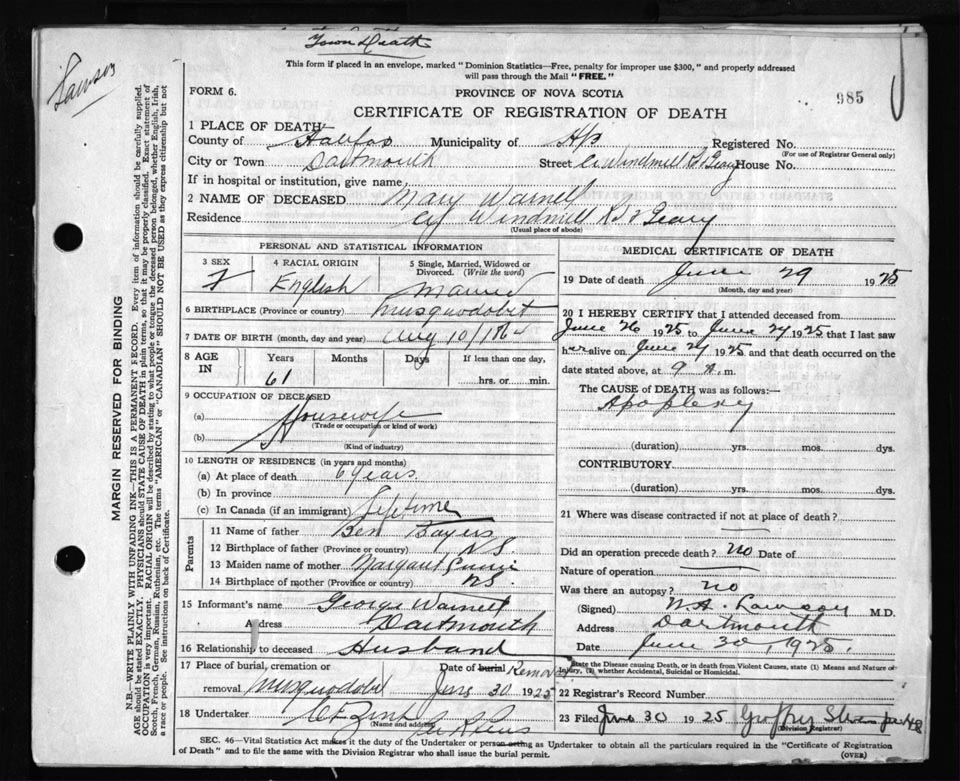 Town Death
Lawson
This form if placed in an envelope, marked "Dominion Statistics—Free, penalty for improper use $300," and properly addressed
will pass through the Mail "FREE."
FORM 6.
PROVINCE OF NOVA SCOTIA
985
CERTIFICATE OF REGISTRATION OF DEATH
1 PLACE OF DEATH
County of Halifax Municipality of Hfx Registered No.
(For use of Registrar General only)
City or Town Dartmouth Street Windmill Rd & Geary House No.
If in hospital or institution, give name
2 NAME OF DECEASED Mary Warnell
Residence Windmill Rd & Geary
(Usual place of abode)
PERSONAL AND STATISTICAL INFORMATION
3 SEX 4 RACIAL ORIGIN 5 Single, Married, Widowed or
Divorced. (Write the word)
F English Married
6 BIRTHPLACE (Province or country) Musquodobit
7 DATE OF BIRTH (month, day and year) Aug 10/1864
8 AGE IN Years Months Days If less than one day,
61 hrs. or min.
9 OCCUPATION OF DECEASED
(a) Housewife
(Trade or occupation or kind of work)
(b)
(Kind of industry)
10 LENGTH OF RESIDENCE (in years and months)
(a) At place of death 6 years
(b) In province
(c) In Canada (if an immigrant) Lifetime
Parents
11 Name of father Ben Bayers
12 Birthplace of father (Province or country) N.S.
13 Maiden name of mother Margaret
14 Birthplace of mother (Province or country) N.S.
15 Informant's name George Warnell
Address Dartmouth
16 Relationship to deceased Husband
17 Place of burial, cremation or Date of burial Removal
removal Musquodobit June 30 1925
18 Undertaker
(Name and address)
MEDICAL CERTIFICATE OF DEATH
19 Date of death June 29 1925
(Month, day and year)
20 I HEREBY CERTIFY that I attended deceased from
June 26 1925 to June 29 1925 that I last saw
her alive on June 29 1925 and that death occurred on the
date stated above, at 9 m.
The CAUSE OF DEATH was as follows:—
Apoplexy
(duration) yrs. mos. dys.
CONTRIBUTORY
(duration) yrs. mos. dys.
21 Where was disease contracted if not at place of death?
Did an operation precede death? no Date of
Nature of operation
Was there an autopsy? no
(Signed) W.A. Lawson M.D.
Address Dartmouth
Date June 30, 1925.
State the Disease causing Death, or in death from Violent Causes, state (1) Means and Nature of
Injury, (2) whether Accidental, Suicidal or Homicidal.
22 Registrar's Record Number
23 Filed June 30 1925 Geoffrey
(Division Registrar)
SEC. 46—Vital Statistics Act makes it the duty of the Undertaker or person acting as Undertaker to obtain all the particulars required in the "Certificate of Registration
of Death" and to file the same with the Division Registrar who shall issue the burial permit.
(OVER)
MARGIN RESERVED FOR BINDING
N.B.—WRITE PLAINLY WITH UNFADING INK—THIS IS A PERMANENT RECORD. Every item of information should be carefully supplied.
AGE should be stated EXACTLY. PHYSICIANS should STATE CAUSE OF DEATH in plain terms, so that it may be properly classified. Exact statement of
OCCUPATION is very important. RACIAL ORIGIN will be described by stating to what people or tongue the deceased person belonged, whether English, Irish,
Scotch, French, German, Russian, Ruthenian, etc. The terms "AMERICAN" or "CANADIAN" SHOULD NOT BE USED as they express citizenship but not
a race or people. See instructions on back of Certificate.